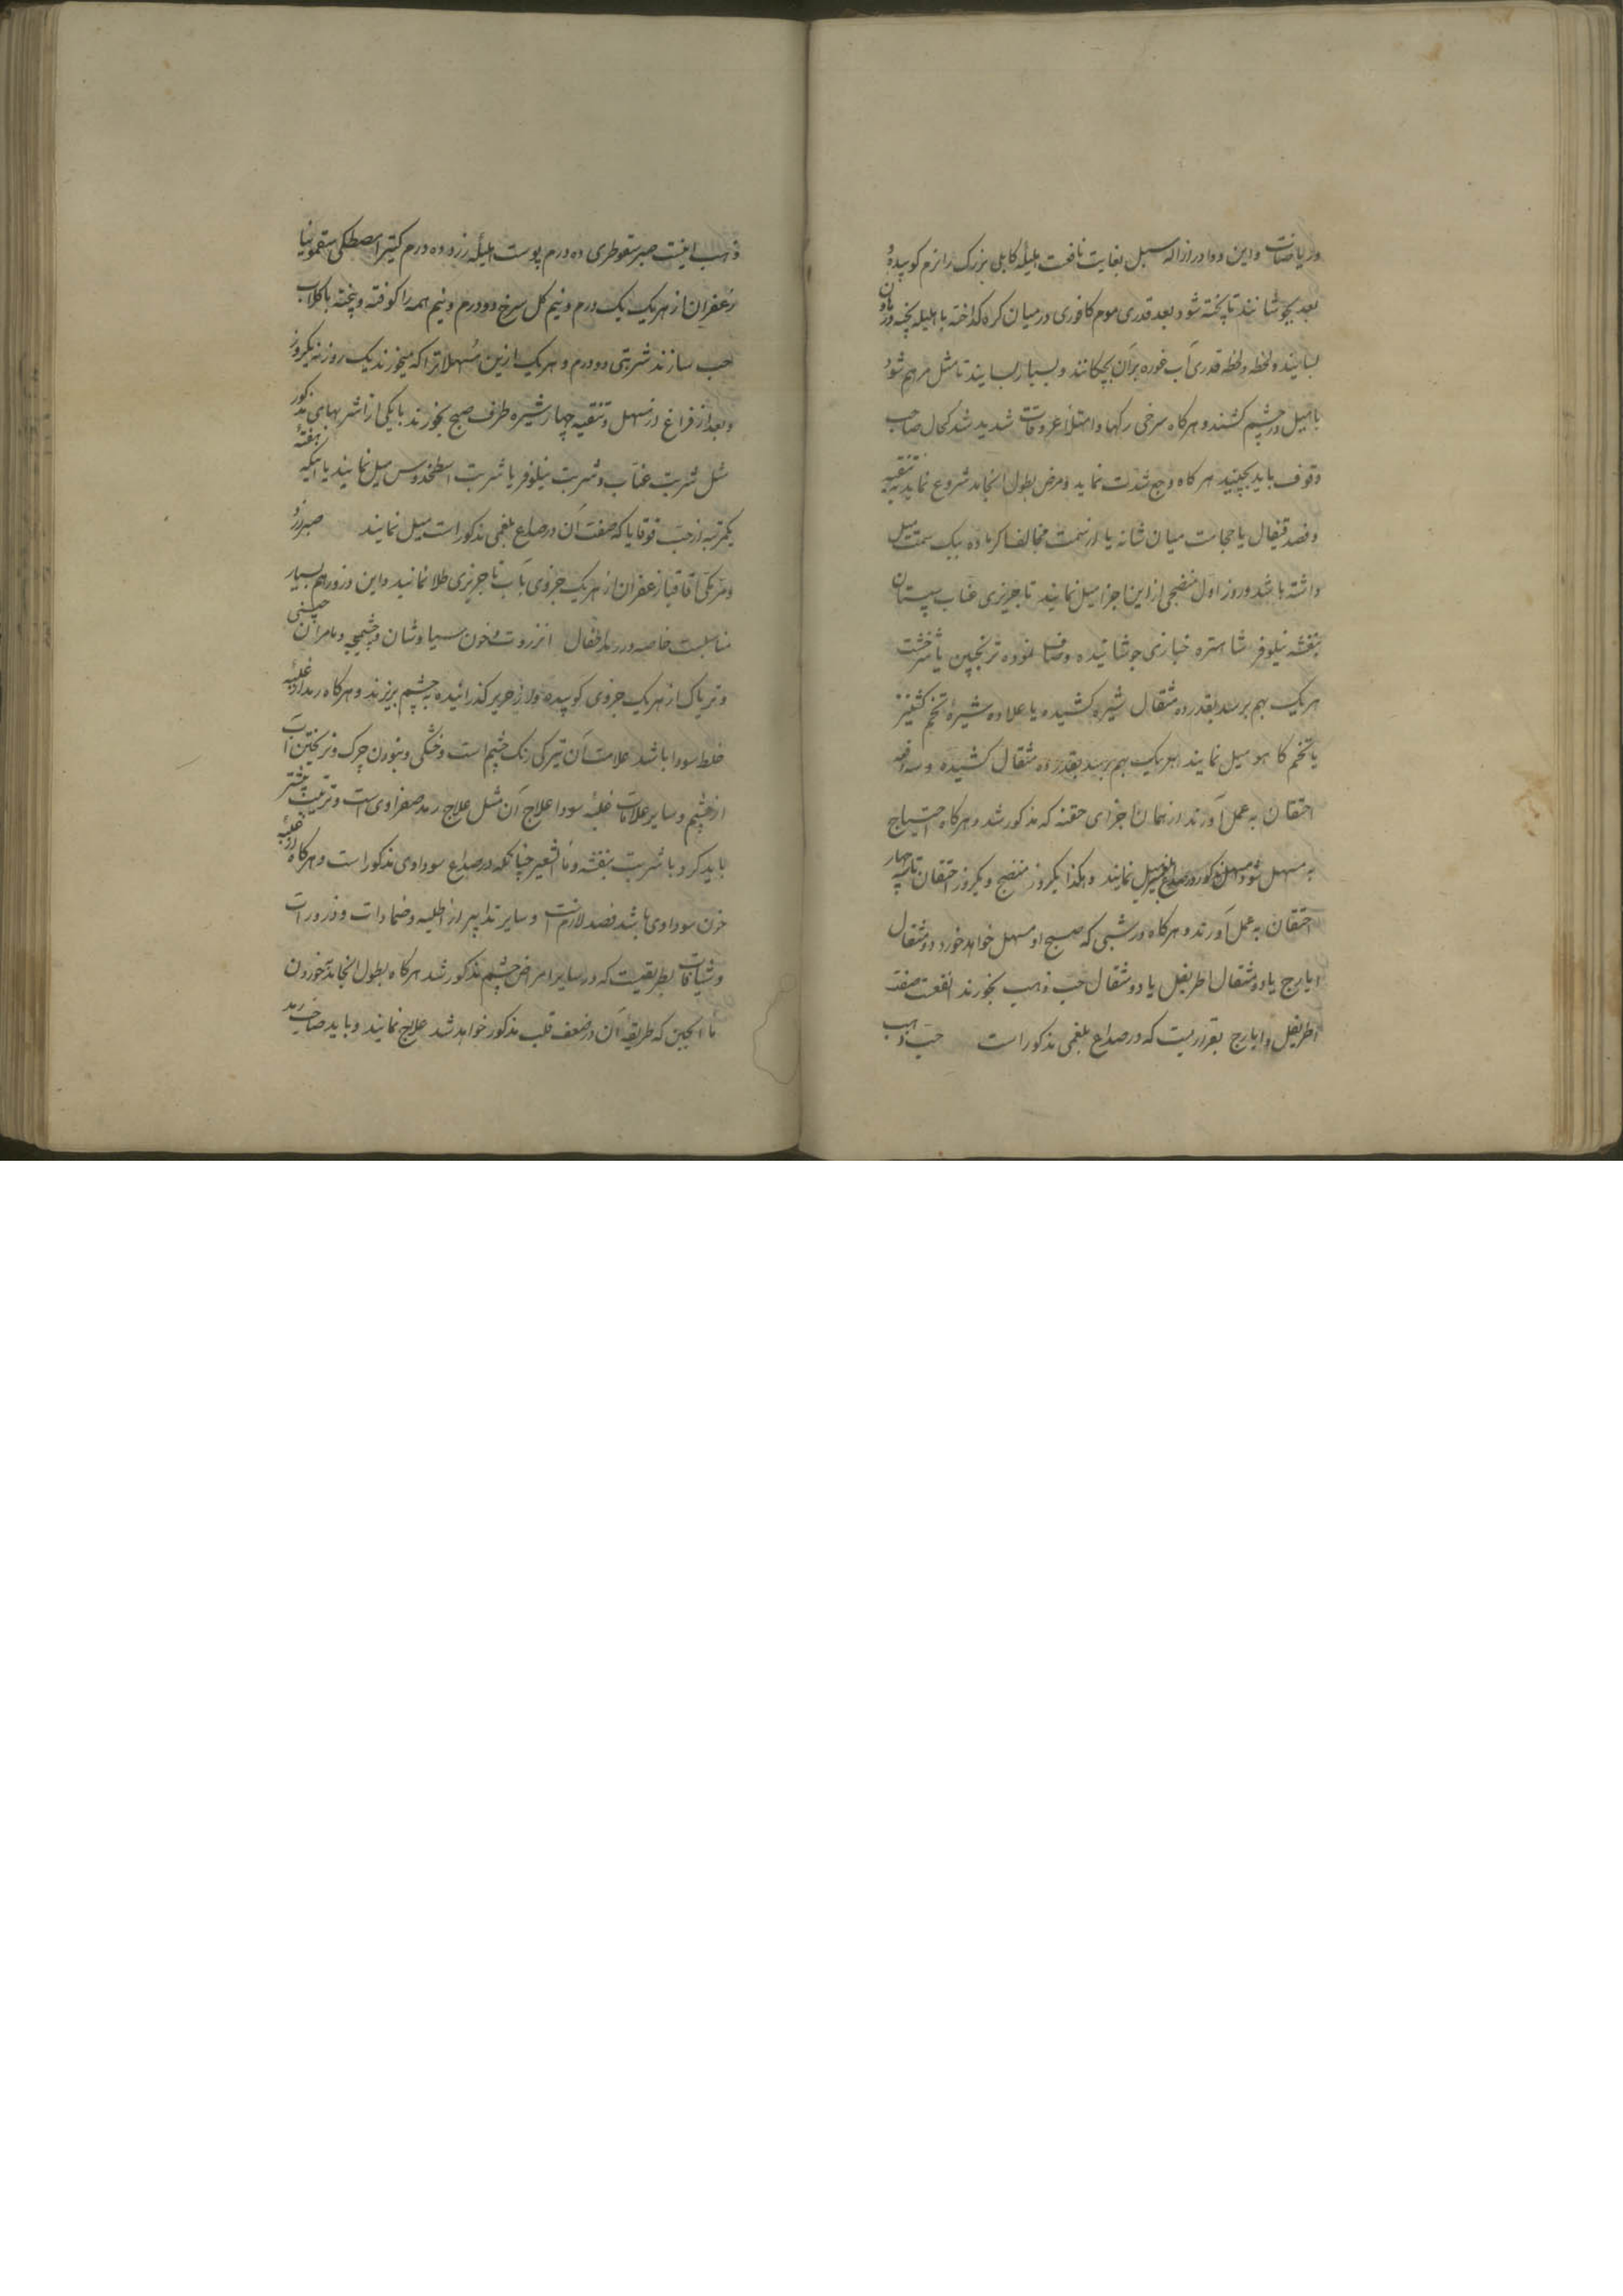 وریاضات و این دوا در ازاله سبل بغایت نافعت هلیله کابلی بزرک را نرم کوبیده و
بعد بجوشانند تا پخته شود بعد قدری موم کافوری در میان کره کداخته با هلیله پخته در هاون
بسایند و لحظه ولحظه قدری آب غوره بر آن بچکانند و بسیار بسایند تا مثل مرهم شود
با میل در چشم کشند و هرکاه سرخی رکها و امتلاء عروقات شدید شد کحال صاحب
وقوف باید بچیند هرکاه وجع شدت نماید و مرض بطول انجامد شروع نماید به تنقیه
و فصد قیفال یا حجامت میان شانه یا از سمت مخالف اکر ماده بیک سمت میل
داشته باشد و روز اول منضجی از این اجزا میل نمایند تاجریزی عناب سپستان
بنفشه نیلوفر شاهتره خبازی جوشانیده و صاف نموده ترنجبین یا شیرخشت
هریک بهم برسد بقدر ده مثقال شیره کشیده یا علاوه شیره تخم کشنیز
یا تخم کاهو میل نمایند هریک بهم برسد بقدر ده مثقال کشیده و سه دفعه
احتقان به عمل آورند از همان اجزای حقنه که مذکور شد و هرکاه احتیاج
به مسهل شود مسهل مذکور در صداع میل نمایند و هکذا یکروز منضج و یکروز احتقان تا سه چهار
احتقان به عمل آورند و هرکاه در شبی که صبح او مسهل خواهد خورد دو مثقال
ایارج یا دو مثقال اطریفل یا دو مثقال حب ذهب بخورند انفعست صفت
اطریفل و ایارج بقراریست که در صداع بلغمی مذکور است حب ذهب
ذهب اینست صبر سقوطری ده درم پوست هلیله زرد ده درم کتیرا مصطکی سقمونیا
زعفران از هریک یک درم و نیم کل سرخ دو درم و نیم همه را کوفته و پخته با کلاب
حب سازند شربتی دو درم و هریک ازین مسهلاترا که میخورند یک روز نه یکروز
و بعد از فراغ از مسهل و تنقیه چهار شیره ظرف صبح بخورند با یکی از شربهای مذکور
مثل شربت عناب و شربت نیلوفر یا شربت اسطخدوس میل نمایند یا آنکه هفتهٔ
یکمرتبه از حب قوقایا که صفت آن در صداع بلغمی مذکور است میل نمایند صبر زرد
و مرمکی اقاقیا زعفران از هریک جزوی بآب تاجریزی طلا نمایند و این ذرور هم بسیار
مناسبست خاصه در رمد اطفال انزروت و خون سیاوشان و چشمیچه و مامران چینی
و تریاک از هریک جزوی کوبیده و از حریر کذرانیده به چشم بریزند و هرکاه رمد از غلبه
خلط سودا باشد علامت آن تیرکی رنک چشم است و خشکی و نبودن چرک و نریختن آب
از چشم و سایر علامات غلبهٔ سودا علاج آن مثل علاج رمد صفراوی است و ترطیب بیشتر
باید کرد با شربت بنفشه و ماءالشعیر چنانکه در صداع سوداوی مذکور است و هرکاه از غلبه
خون سوداوی باشد فصد لازمست و سایر تدابیر از اطلیه و ضمادات و ذرورات
و شیافات بطریقیست که در سایر امراض چشم مذکور شد هرکاه بطول انجامد خوردن
ماءالجبن که طریقه آن در ضعف قلب مذکور خواهد شد علاج نمایند و باید صاحب رمد